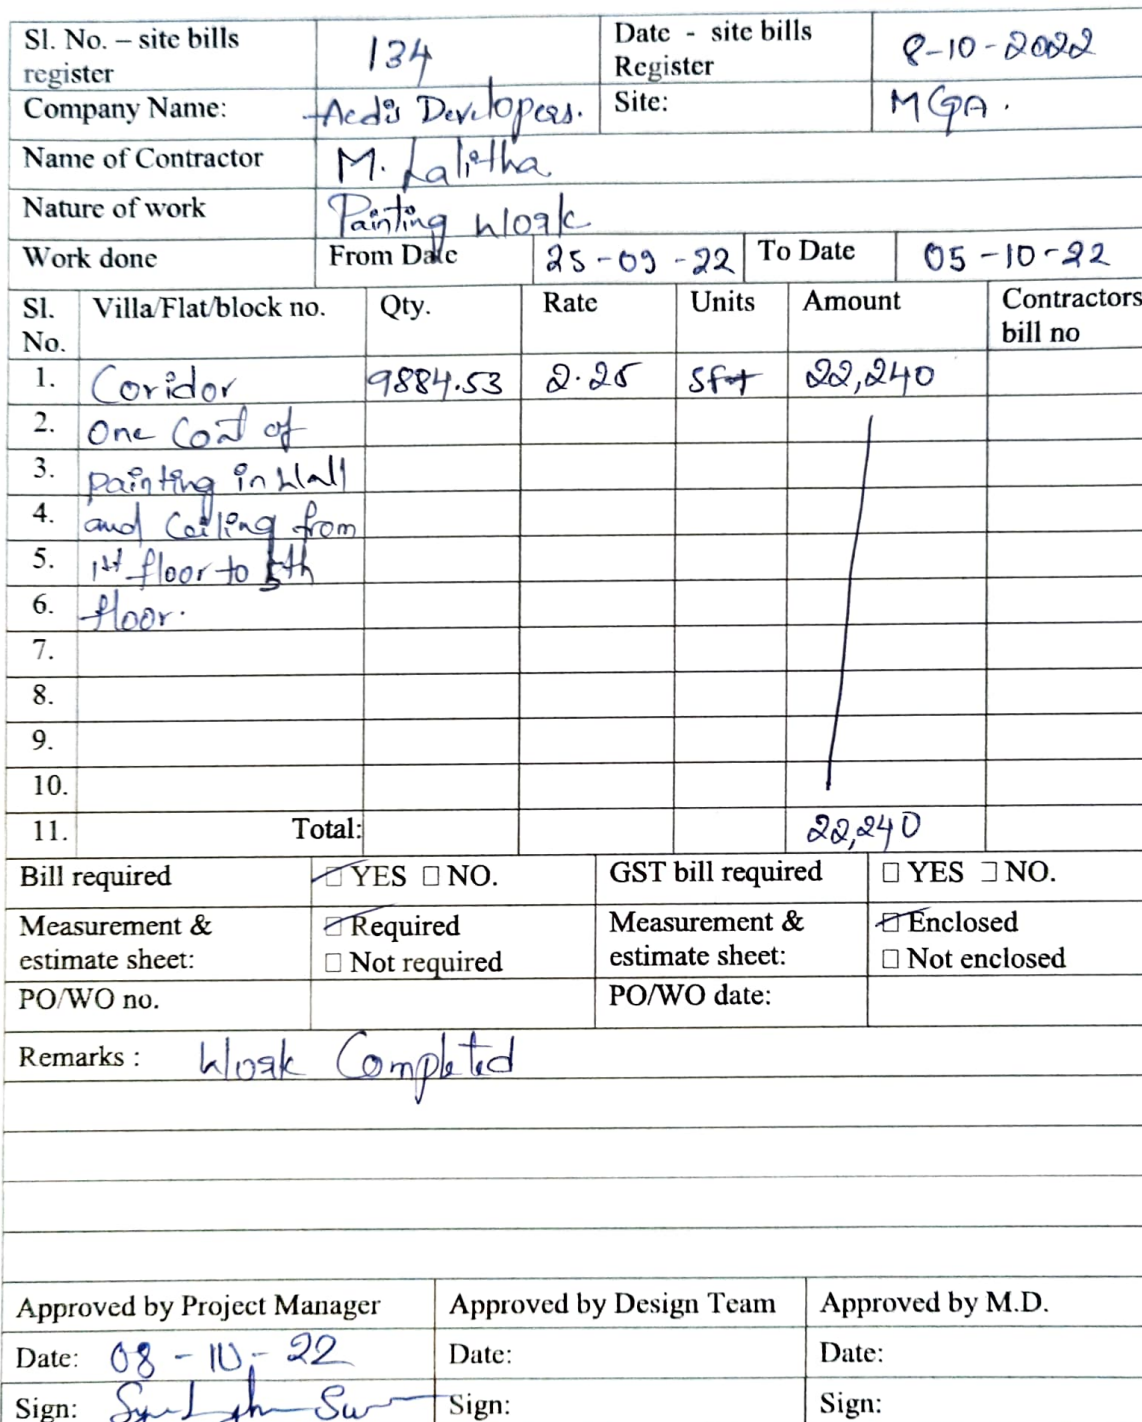 Sl. No. – site bills register 134 Date - site bills Register 8-10-2022
Company Name: Aedis Developers. Site: MGA.
Name of Contractor M. Lalitha
Nature of work Painting Work
Work done From Date 25-09-22 To Date 05-10-22
Sl. No. Villa/Flat/block no. Qty. Rate Units Amount Contractors bill no
1. Coridor 9884.53 2.25 Sft 22,240
2. One Coat of
3. painting in Wall
4. and Ceiling from
5. 1st floor to 5th
6. floor.
7.
8.
9.
10.
11. Total: 22,240
Bill required ☑ YES ☐ NO. GST bill required ☐ YES ☐ NO.
Measurement & estimate sheet: ☑ Required ☐ Not required Measurement & estimate sheet: ☑ Enclosed ☐ Not enclosed
PO/WO no. PO/WO date:
Remarks : Work Completed
Approved by Project Manager Approved by Design Team Approved by M.D.
Date: 08-10-22 Date: Date:
Sign: Sign: Sign: